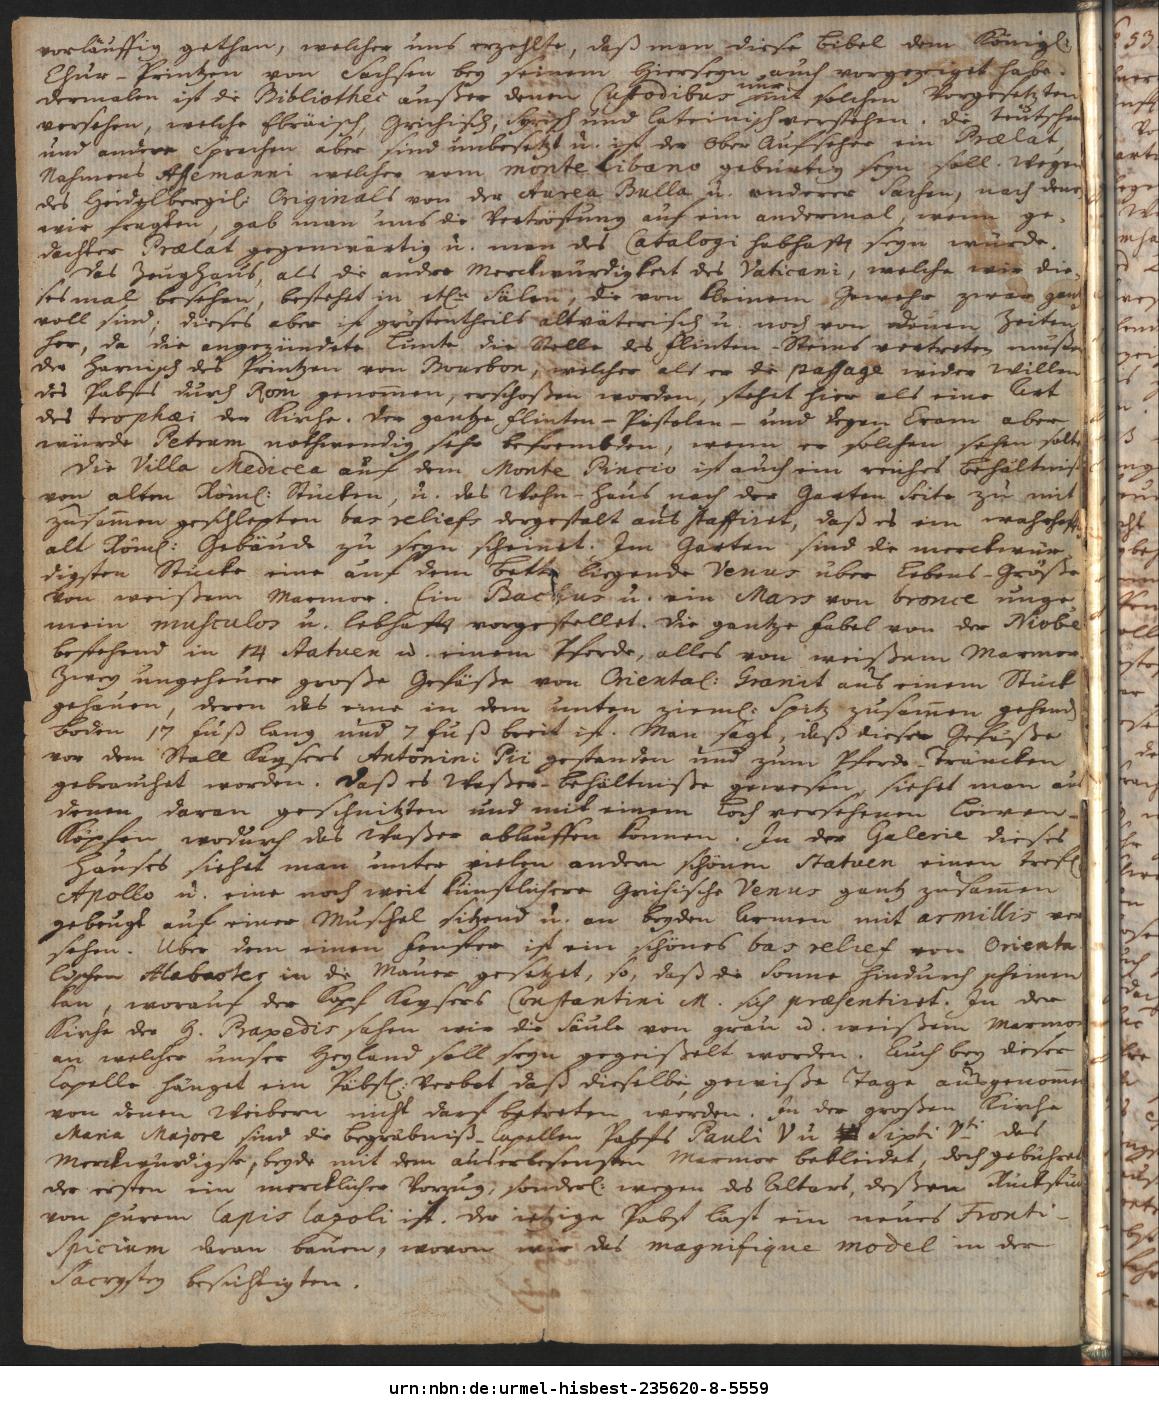 vorläuffig gethan, welcher uns erzehlte, daß man diese Bibel dem Königl:
Chur-Printzen von Sachsen bey seinem Hierseyn auch vorgezeiget habe.
dermalen ist die Bibliothec außer denen Custodibus nur mit solchen Vorgesetzten
versehen, welche Ebräisch, Grichisch, Syrisch und Lateinisch verstehen. die teutsche
und andere Sprachen aber sind unbesetzt u. ist der Ober Aufseher ein Prælat,
Nahmens Assemanni welcher vom monte Libano gebürtig seyn soll. Wegen
des Heidelbergil: Originals von der Aurea Bulla u. anderer Sachen, nach denen
wir fragten, gab man uns die Vertröstung auf ein andermal, wenn ge-
dachter Prælat gegenwärtig u. man des Catalogi habhafft seyn würde.
Das Zeughaus, als die andre Merckwürdigkeit des Vaticani, welche wir die-
ses mal besehen, bestehet in etl: Sälen, die von kleinem Gewehr zwar gantz
voll sind; dieses aber ist gröstentheils altväterisch u. noch von denen Zeiten
her, da die angezündete Lunte die Stelle des Flinten-Steins vertreten müßen
der Harnisch des Printzen von Bourbon, welcher als er die passage wider Willen
des Pabsts durch Rom genom̅en, erschoßen worden, stehet hier als eine Art
des trophæi der Kirche. Der gantze Flinten-Pistolen- und Degen Cram aber
würde Petrum nothwendig sehr befrembden, wenn er solchen sehen solte
Die Villa Medicea auf dem Monte Pincio ist auch ein reiches Behältniß
von alten Röml: Stücken, u. das Wohn-Haus nach der Garten Seite zu mit
zusam̅en geschlepten bas reliefs dergestalt aus staffiret, daß es ein wahrhafft
alt Röml: Gebäude zu seyn scheinet. Im Garten sind die merckwür-
digsten Stücke eine auf dem Bette liegende Venus über Lebens-Größe
von weißem Marmor. Ein Bacchus u. ein Mars von bronce unge-
mein musculos u. lebhafft vorgestellet. Die gantze Fabel von der Niobe
bestehend in 14 Statuen u. einem Pferde, alles von weißem Marmor
Zwey ungeheuer große Gefäße von Oriental: Granit aus einem Stück
gehauen, deren das eine in dem unten zieml: Spitz zusam̅en gehend
boden 17 fuß lang und 7 fuß breit ist. Man sagt, daß diese Gefäße
vor dem Stall Kaysers Antonini Pii gestanden und zum Pferde-Träncken
gebrauchet worden. Daß es Waßer-behältniße gewesen, siehet man aus
denen daran geschnitzten und mit einem Loch versehenen Löwen-
Köpfen wodurch das Waßer ablauffen können. In der Galerie dieses
Hauses siehet man unter vielen andern schönen Statuen einen trefl:
Apollo u. eine noch weit künstlichere Grichische Venus gantz zusam̅en
gebeugt auf einer Muschel sitzend u. an beyden Armen mit armillis ver-
sehen. Uber dem einen Fenster ist ein schönes bas relief von Orienta-
lischen Alabaster in die Mauer gesetzet, so, daß die Sonne hindurch scheinen
kan, worauf der Kopf Kaysers Constantini M. sich præsentiret. In der
Kirche der H. Praxedis sahen wir die Säule von grau u. weißem Marmor
an welcher unser Heyland soll seyn gegeißelt worden. Auch bey dieser
Capelle hänget ein Päbstl: Verbot daß dieselbe, gewiße Tage ausgenom̅en
von denen Weibern nicht darf betreten werden. In der großen Kirche
Maria Majore sind die begräbniß-Capellen Pabsts Pauli V u Sixti Vti das
Merckwürdigste, beyde mit dem auserlesensten Marmor bekleidet, doch gebühret
der ersten ein mercklicher Vorzug, sonderl: wegen des Altars, deßen Rückstück
von purem Lapis Lazoli ist. Der ietzige Pabst läst ein neues Fronti-
spicium daran bauen, wovon wir das magnifique model in der
Sacrystey besichtigten.
urn:nbn:de:urmel-hisbest-235620-8-5559